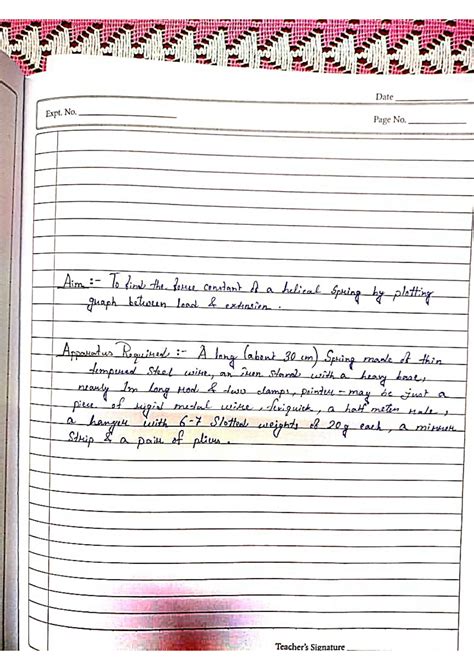 Date
Expt. No.
Page No.
Aim :- To find the force constant of a helical spring by plotting
graph between load & extension.
Apparatus Required :- A long (about 30 cm) Spring made of thin
tempered steel wire, an iron stand with a heavy base,
nearly 1m long rod & two clamps, pointer - may be just a
piece of rigid metal wire, feviquick, a half meter scale,
a hanger with 6-7 Slotted weights of 20g each, a mirror
Strip & a pair of pliers.
Teacher's Signature